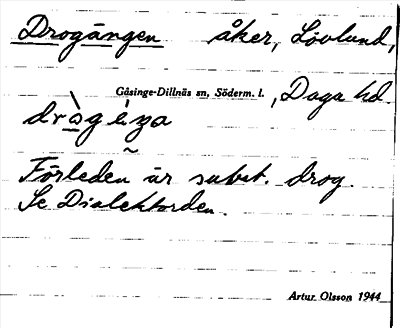 Drogängen åker, Lövlund,
Gåsinge-Dillnäs sn, Söderm. l. , Daga hd.
dràgèŋa
Förleden är subst. drog.
Se Dialektorden.
Artur Olsson 1944